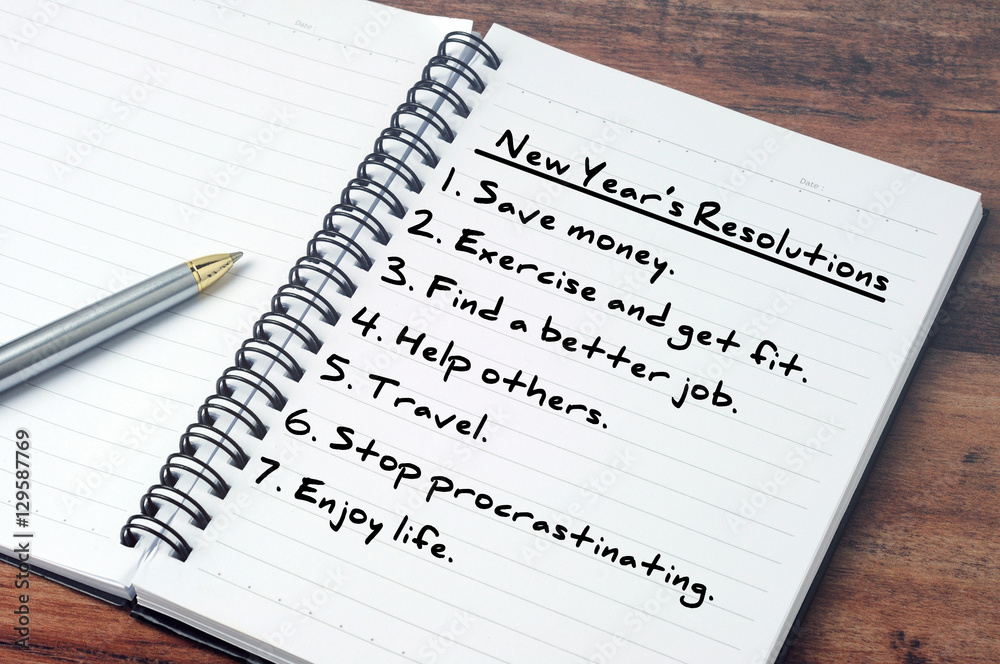 Date :
Date :
New Year's Resolutions
1. Save money.
2. Exercise and get fit.
3. Find a better job.
4. Help others.
5. Travel.
6. Stop procrastinating.
7. Enjoy life.
Adobe Stock | #129587769
Adobe Stock